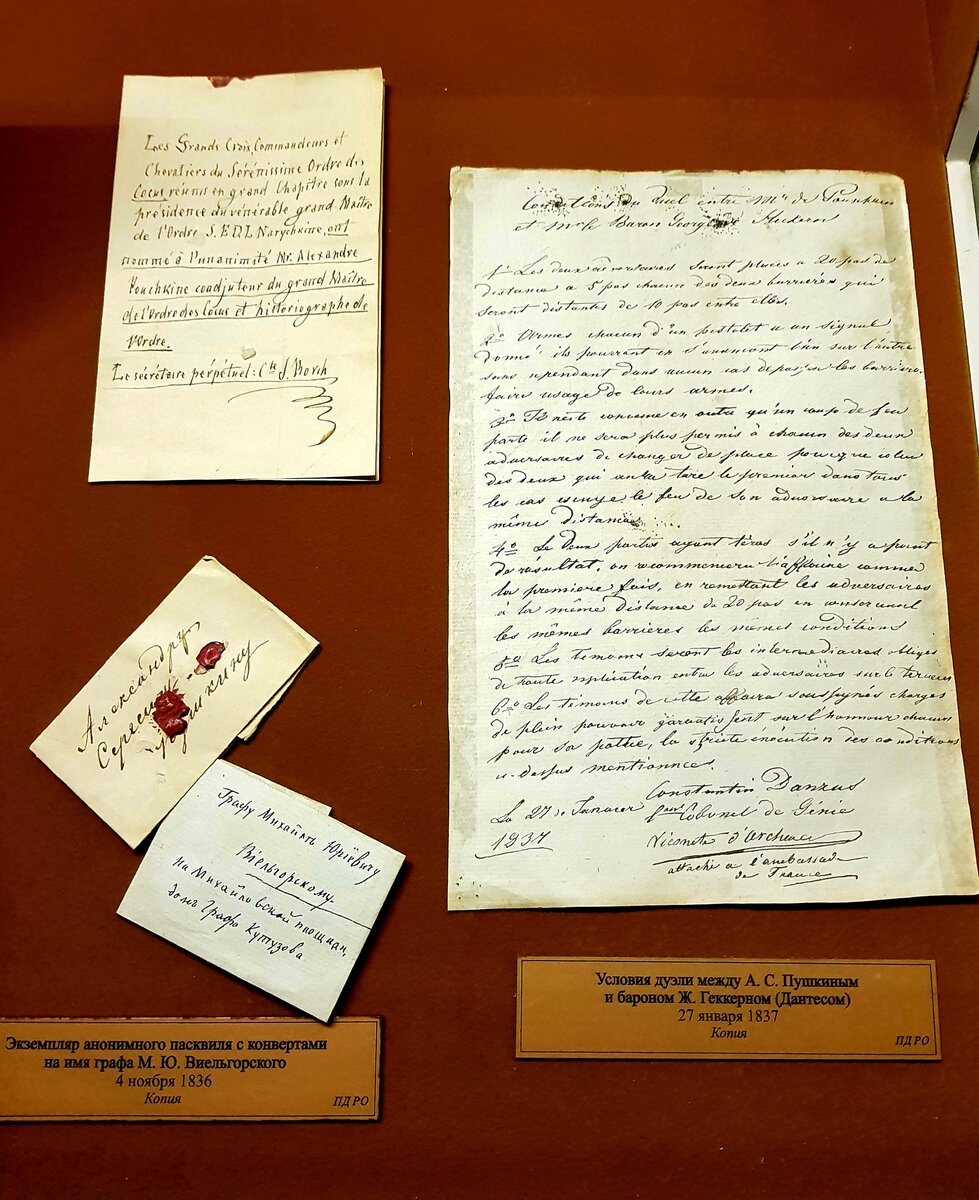 Les Grands Croix, Commandeurs et
Chevaliers du Sérénissime Ordre des
Cocus, réunis en grand Chapitre sous la
présidence du vénérable grand Maître
de l'Ordre S. E. D. L. Narychkine, ont
nommé à l'unanimité Mr. Alexandre
Pouchkine coadjuteur du grand Maître
de l'Ordre des Cocus et historiographe de
l'Ordre.
Le sécrétaire perpétuel: Cte J. Borch
Александру
Сергеичу
Пушкину
Графу Михаилъ Юрiевичу
Вiельгорскому.
На Михайловской площади,
домъ Графа Кутузова.
Экземпляр анонимного пасквиля с конвертами
на имя графа М. Ю. Виельгорского
4 ноября 1836
Копия
ПД РО
Conditions du Duel entre Mr de Pouchkin
et Mr le Baron Georges de Heckern
1° Les deux adversaires seront placés à 20 pas de
distance à 5 pas chacun des deux barrières qui
seront distantes de 10 pas entre elles.
2° Armés chacun d'un pistolet à un signal
donné ils pourront en s'avançant l'un sur l'autre
sans cependant dans aucun cas dépasser les barrières
faire usage de leurs armes.
3° Il reste convenu en outre qu'un coup de feu
parti il ne sera plus permis à chacun des deux
adversaires de changer de place pour que celui
des deux qui aura tiré le premier dans tous
les cas essuye le feu de son adversaire à la
même distance.
4° Les deux parties ayant tirés s'il n'y a point
de résultat, on recommencera l'affaire comme
la première fois, en remettant les adversaires
à la même distance de 20 pas en conservant
les mêmes barrières les mêmes conditions
5° Les témoins seront les intermédiaires obligés
de toute explication entre les adversaires sur le terrain
6° Les témoins de cette affaire soussignés chargés
de plein pouvoir garantissent sur l'honneur chacun
pour sa partie, la stricte exécution des conditions
ci-dessus mentionnées.
Constantin Danzas
Le 27 de Janvier
Lieut Colonel de Génie
1837
Vicomte d'Archiac
attaché à l'ambassade
de France
Условия дуэли между А. С. Пушкиным
и бароном Ж. Геккерном (Дантесом)
27 января 1837
Копия
ПД РО